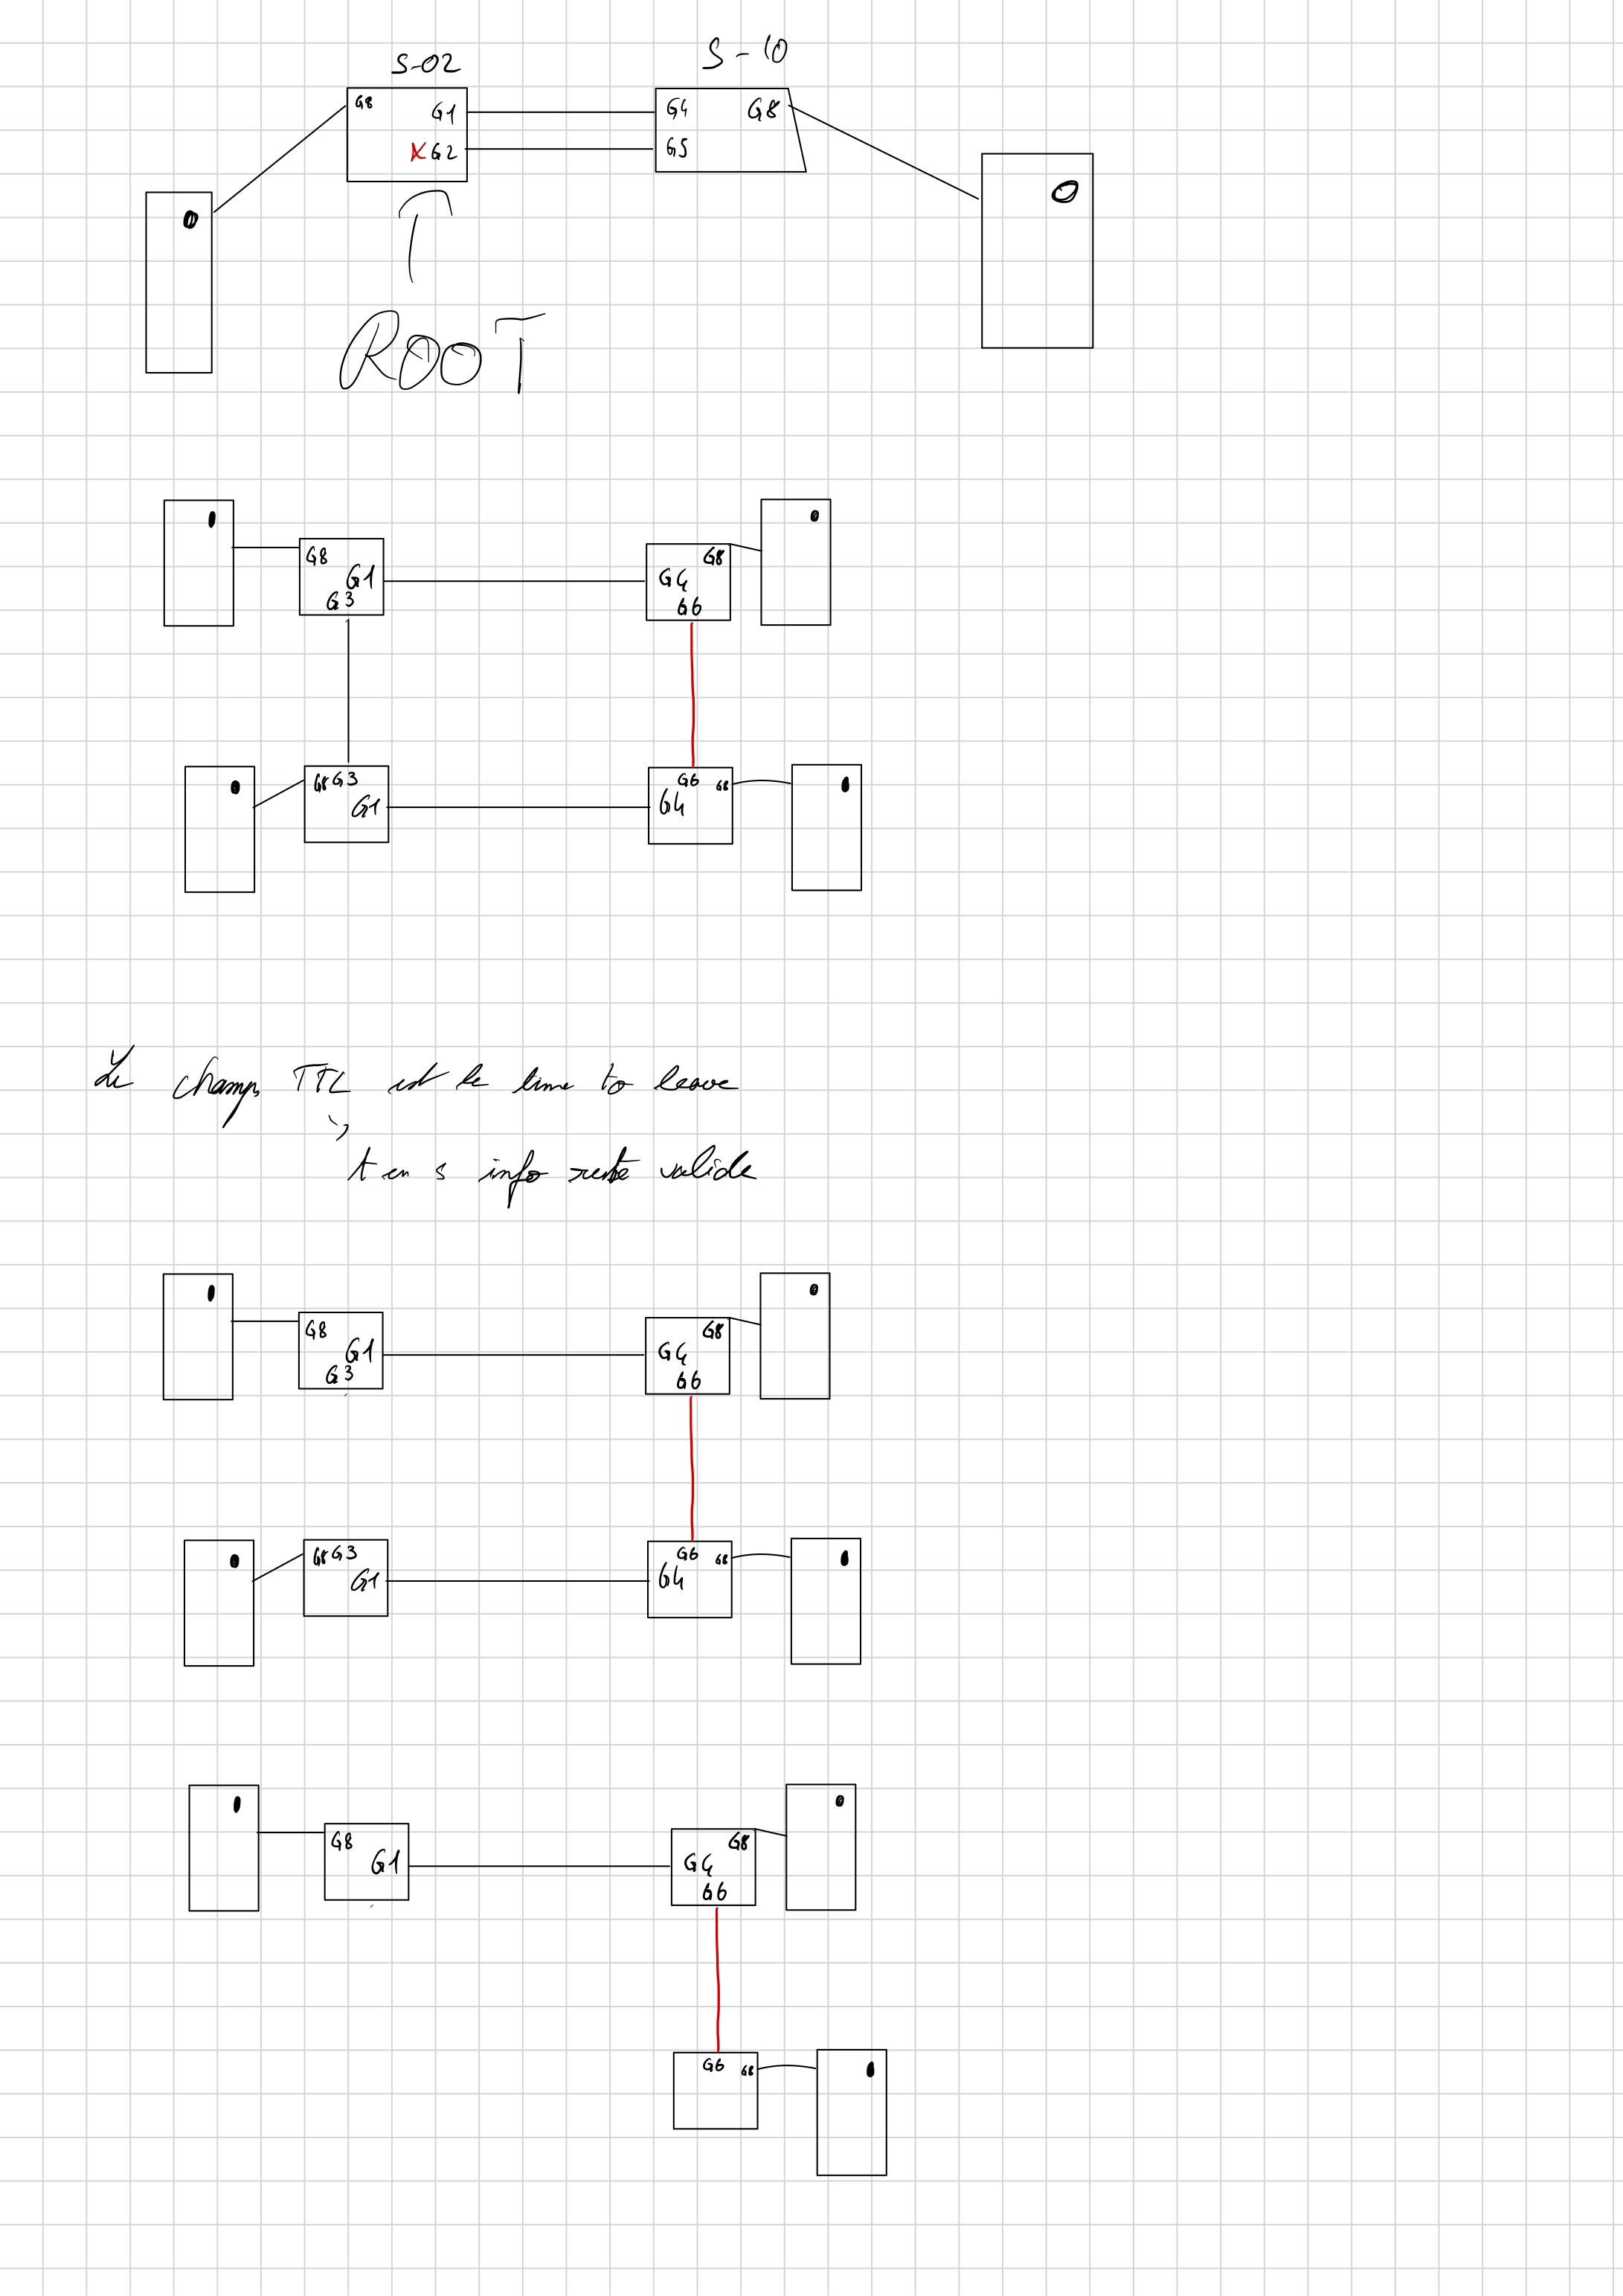 S-02
S-10
G8
G1
X G2
G4
G8
G5
ROOT
G8
G1
G3
G8
G4
G6
G8 G3
G1
G6
G8
G4
Le champs TTL est le time to leave
t en s info reste valide
G8
G1
G3
G8
G4
G6
G8 G3
G1
G6
G8
G4
G8
G1
G8
G4
G6
G6
G8